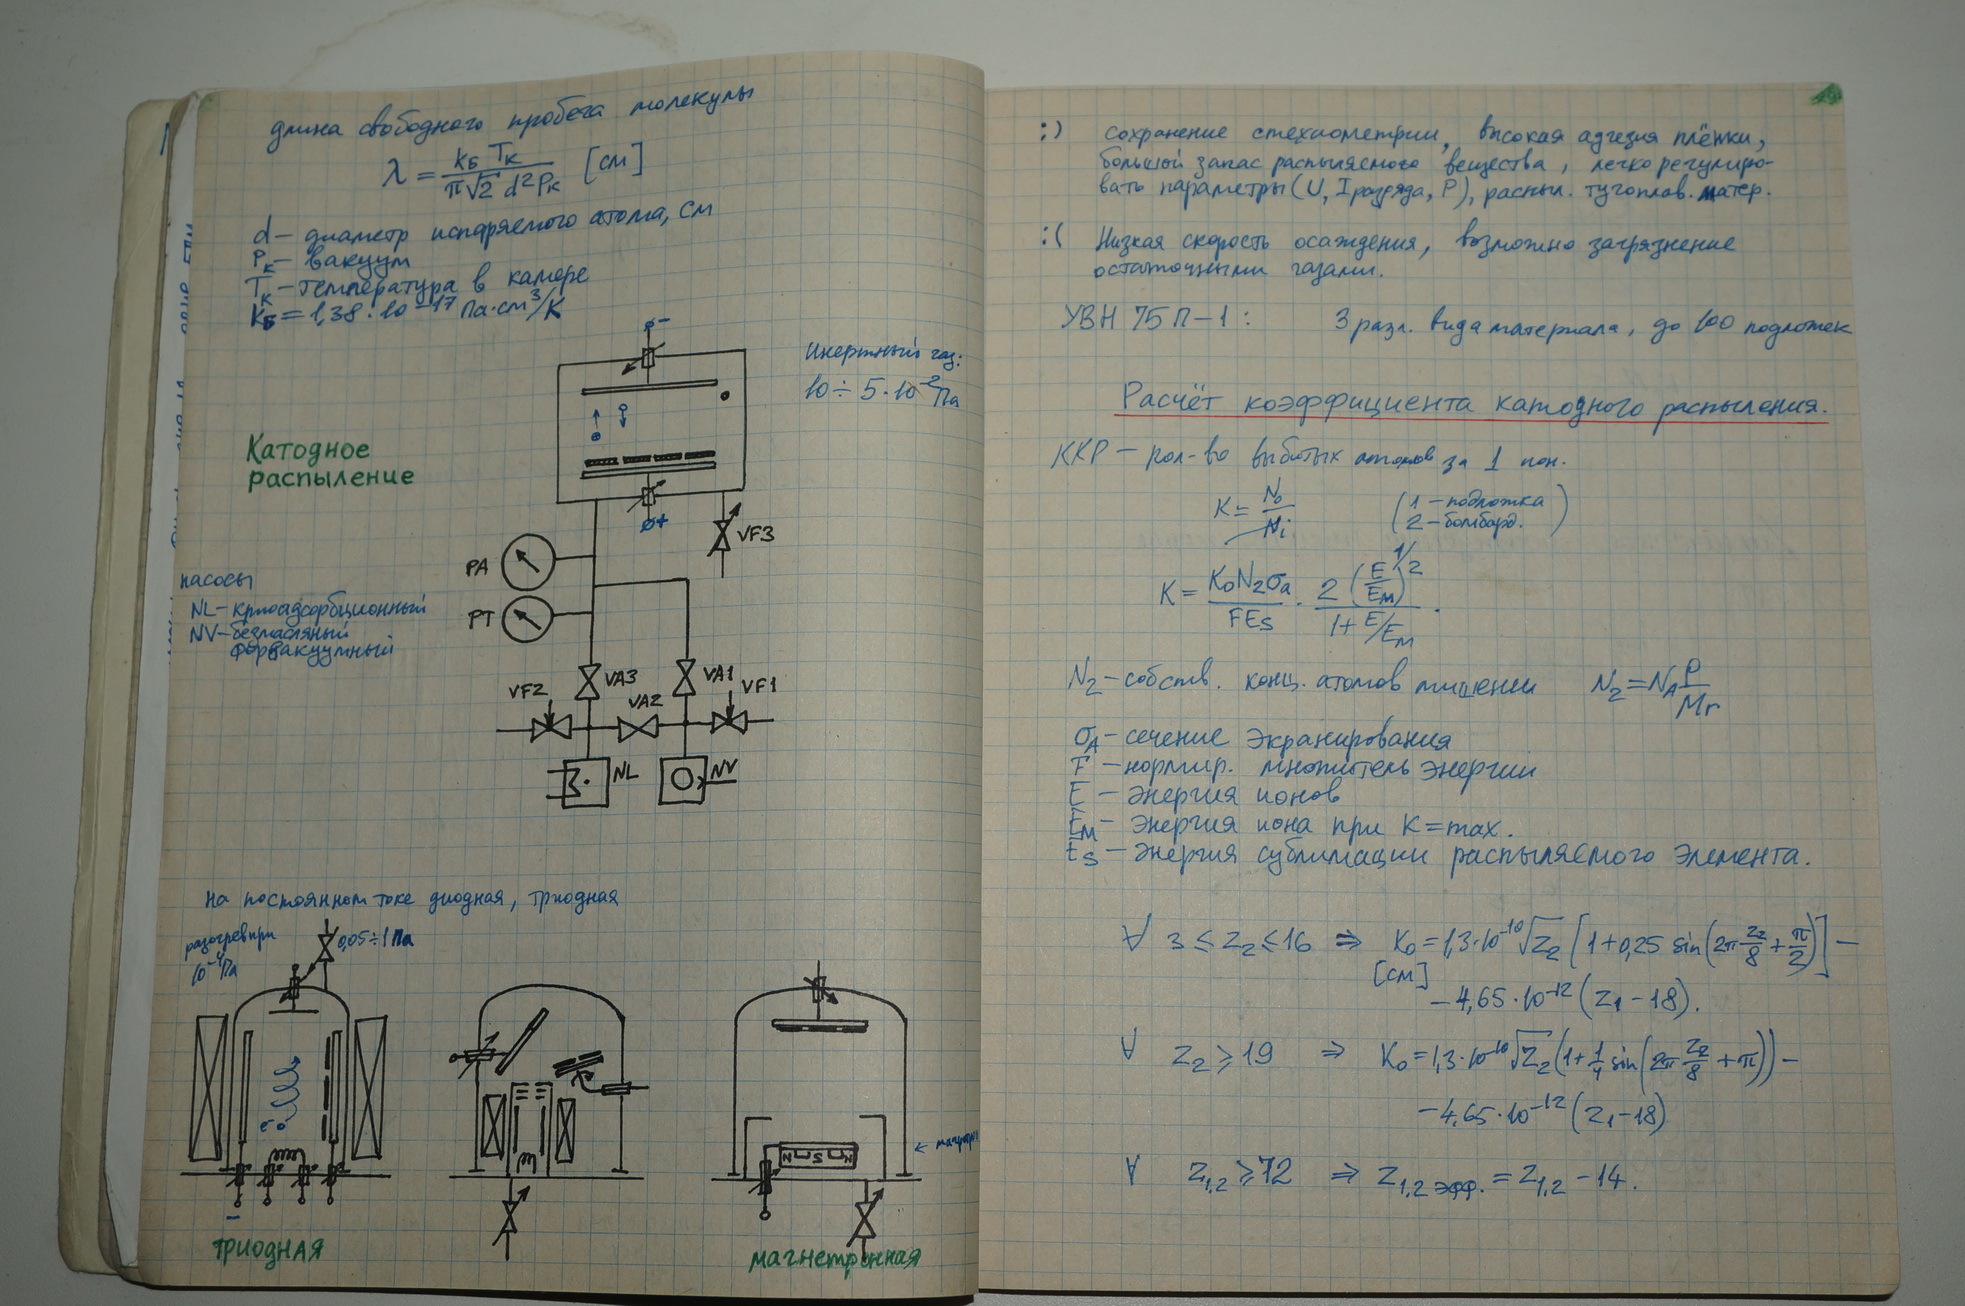 длина свободного пробега молекулы
λ = kБ Tк / π√2 d² Pк [см]
d – диаметр испаряемого атома, см
Pк – вакуум
Tк – температура в камере
kБ = 1,38 · 10⁻¹⁷ Па·см³/К
ø-
Инертный газ:
10 ÷ 5·10⁻² Па
Катодное
распыление
ø+
VF3
PA
PT
насосы
NL – криоадсорбционный
NV – безмасляный
форвакуумный
VF2
VA3
VA2
VA1
VF1
NL
NV
на постоянном токе диодная, триодная
разогрев при
10⁻⁴ Па
0,05 ÷ 1 Па
e⁻
N S N
–
триодная
магнетронная
:) сохранение стехиометрии, высокая адгезия плёнки,
большой запас распыляемого вещества, легко регулиро-
вать параметры (U, I разряда, P), распыл. тугоплав. матер.
:( Низкая скорость осаждения, возможно загрязнение
остаточными газами.
УВН 75 П–1: 3 разл. вида материала, до 100 подложек
Расчёт коэффициента катодного распыления.
ККР – кол-во выбитых атомов за 1 ион.
K = N₀ / Ni (1 – подложка
2 – бомбард.)
K = K₀N₂σa / FEs · 2 (E/Eм)^1/2 / 1 + E/Eм .
N₂ – собств. конц. атомов мишени N₂ = NA ρ/Mr
σA – сечение экранирования
F – нормир. множитель энергии
E – энергия ионов
Eм – энергия иона при K = max.
Es – энергия сублимации распыляемого элемента.
∀ 3 ≤ Z₂ ≤ 16 ⇒ K₀ = 1,3·10⁻¹⁰ √Z₂ [1 + 0,25 sin(2π Z₂/8 + π/2)] –
[см] – 4,65 · 10⁻¹² (Z₁ – 18).
∀ Z₂ ⩾ 19 ⇒ K₀ = 1,3·10⁻¹⁰ √Z₂ (1 + 1/4 sin(2π Z₂/8 + π)) –
– 4,65 · 10⁻¹² (Z₁ – 18)
∀ Z₁,₂ ⩾ 72 ⇒ Z₁,₂ эфф. = Z₁,₂ – 14.